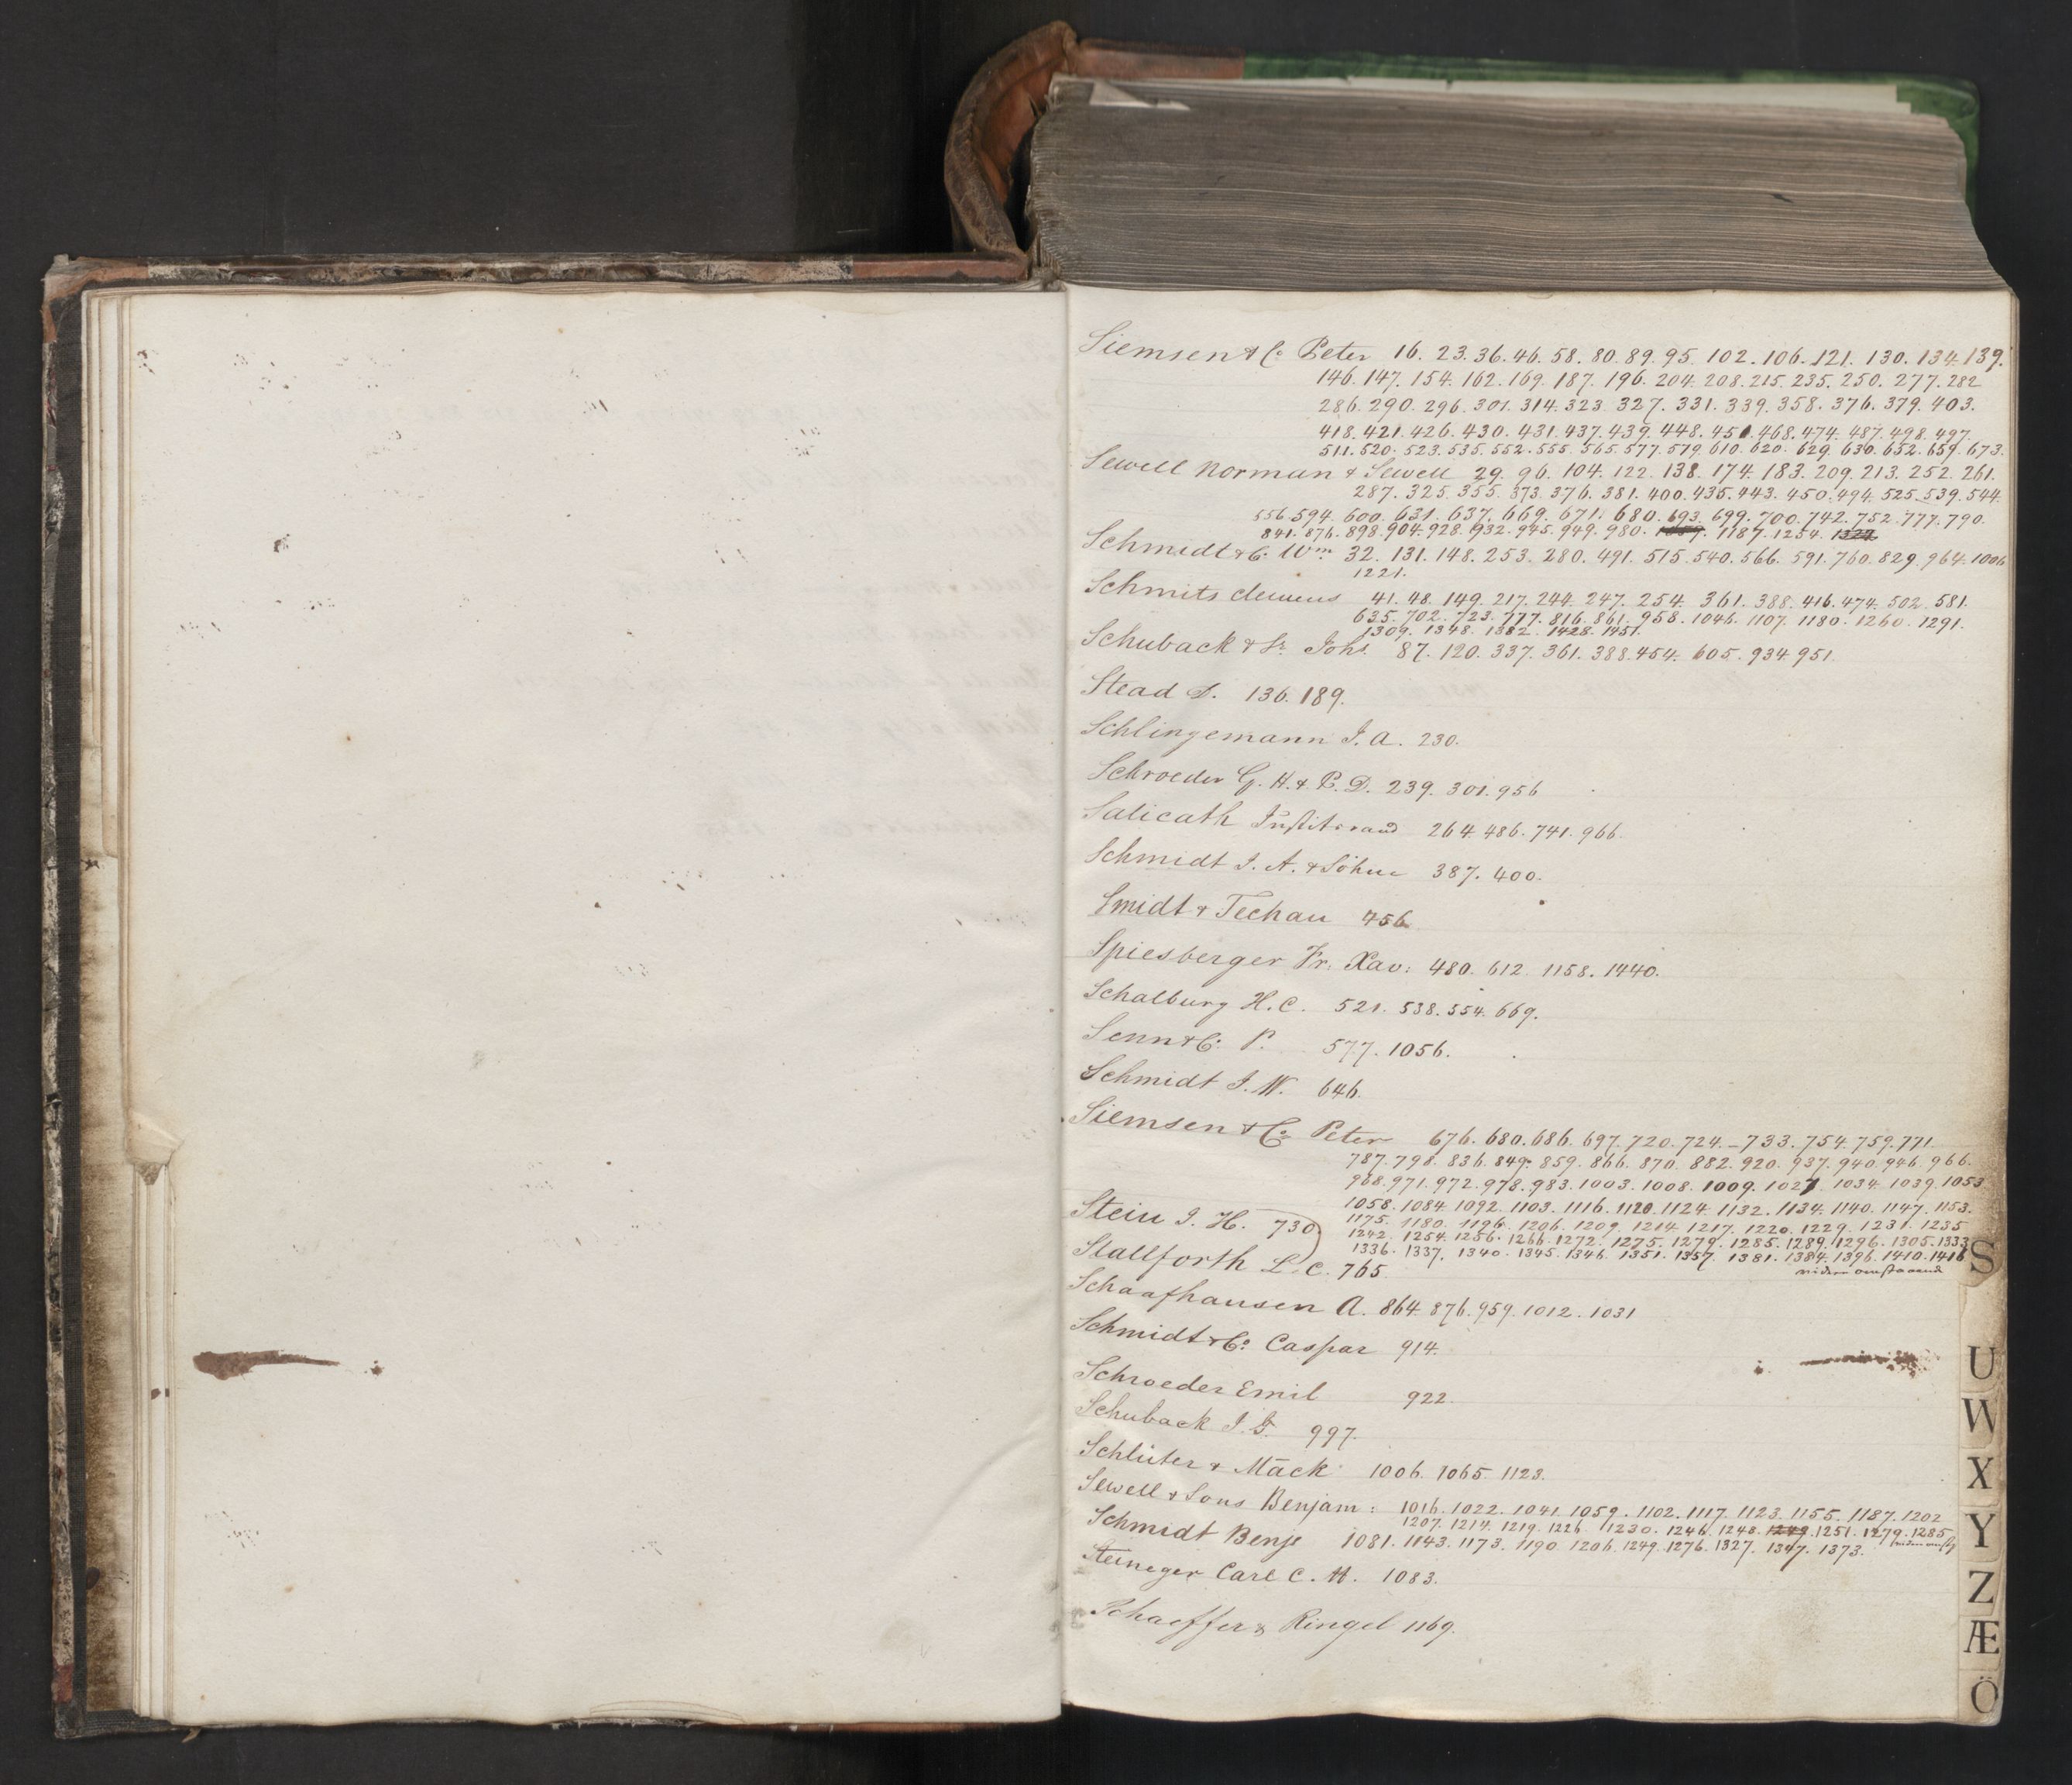 Siemsen & Co Peter 16. 23. 36. 46. 58. 80. 89. 95. 102. 106. 121. 130. 134. 139.
146. 147. 154. 162. 169. 187. 196. 204. 208. 215. 235. 250. 277. 282
286. 290. 296. 301. 314. 323. 327. 331. 339. 358. 376. 379. 403.
418. 421. 426. 430. 431. 437. 439. 448. 451. 468. 474. 487. 498. 497.
511. 520. 523. 535. 552. 555. 565. 577. 579. 610. 620. 629. 630. 652. 659. 673.
Sewell Norman & Sewell 29. 96. 104. 122. 138. 174. 183. 209. 213. 252. 261.
287. 325. 355. 373. 376. 381. 400. 435. 443. 450. 494. 525. 539. 544.
556. 594. 600. 631. 637. 669. 671. 680. 693. 699. 700. 742. 752. 777. 790.
841. 876. 898. 904. 928. 932. 945. 949. 980. 1187. 1254.
Schmidt & Co. Wm 32. 131. 148. 253. 280. 491. 515. 540. 566. 591. 760. 829. 964. 1006
1221.
Schmits Clemens 41. 48. 149. 217. 244. 247. 254. 361. 388. 416. 474. 502. 581.
635. 702. 723. 777. 816. 861. 958. 1046. 1107. 1180. 1260. 1291.
1309. 1348. 1382. 1428. 1451.
Schuback & Sr. Johs. 87. 120. 337. 361. 388. 454. 605. 934. 951.
Stead D. 136. 189.
Schlingemann J. A. 230.
Schroeder G. H. & P. D. 239. 301. 956
Salicath Justitsraad 264. 486. 741. 966.
Schmidt J. A. & Söhne 387. 400.
Smidt & Techau 456
Spiesberger Fr. Xav: 480. 612. 1158. 1440.
Schalburg H. C. 521. 538. 554. 669.
Senn & Co. P. 577. 1056.
Schmidt J. W. 646.
Siemsen & Co Peter 676. 680. 686. 697. 720. 724. 733. 754. 759. 771.
787. 798. 836. 849. 859. 866. 870. 882. 920. 937. 940. 946. 966.
968. 971. 972. 978. 983. 1003. 1008. 1009. 1027. 1034. 1039. 1053
1058. 1084. 1092. 1103. 1116. 1120. 1124. 1132. 1134. 1140. 1147. 1153.
Stein J. H. 730 1175. 1180. 1196. 1206. 1209. 1214. 1217. 1220. 1229. 1231. 1235
1242. 1254. 1256. 1266. 1272. 1275. 1279. 1285. 1289. 1296. 1305. 1333
1336. 1337. 1340. 1345. 1346. 1351. 1357. 1381. 1384. 1396. 1410. 1416
Stallforth L. C. 765. videre omstaaend
Schaafhausen A. 864. 876. 959. 1012. 1031
Schmidt & Co. Caspar 914.
Schroeder Emil 922.
Schuback J. 997.
Schlüter & Mack 1006. 1065. 1123.
Sewell & Sons Benjam: 1016. 1022. 1041. 1059. 1102. 1117. 1123. 1155. 1187. 1202
1207. 1214. 1219. 1226. 1230. 1246. 1248. 1249. 1251. 1279. 1285
Schmidt Benje 1081. 1143. 1173. 1190. 1206. 1249. 1276. 1327. 1347. 1373.
Steineger Carl C. H. 1083.
Schaeffer & Ringel 1169.
S
U
W
X
Y
Z
Æ
Ö